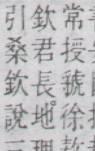 常授號徐
欽君長地理
引桑欽說